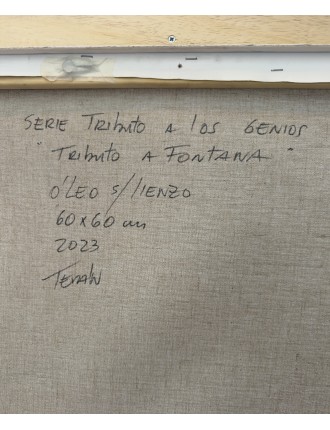 SERIE TRIBUTO A LOS GENIOS
"TRIBUTO A FONTANA"
ÓLEO S/LIENZO
60x60 cm
2023